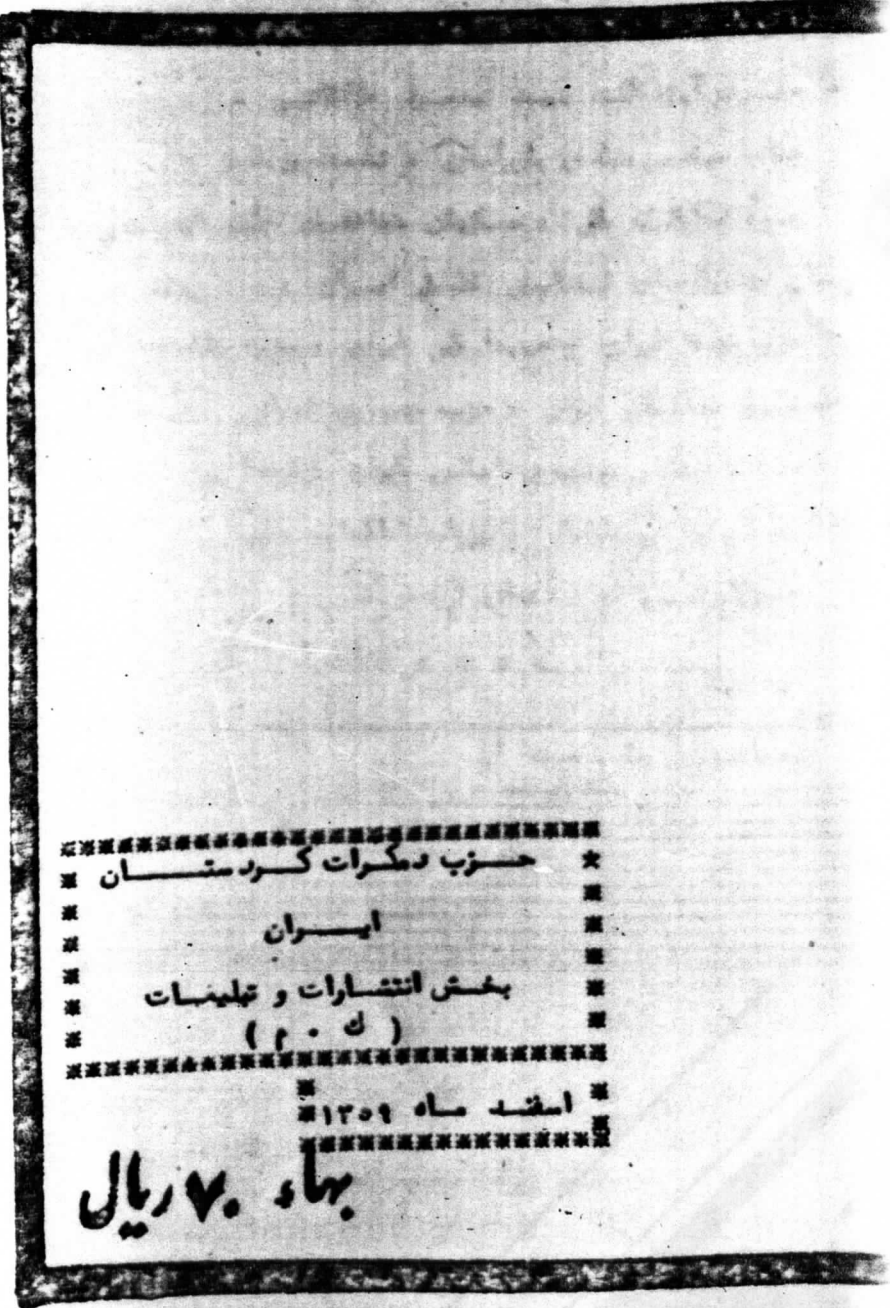 حزب دمکرات کردستان
ایران
بخش انتشارات و تبلیغات
( ك . م )
اسفند ماه ۱۳۵۹
بهاء ۷۰ ریال